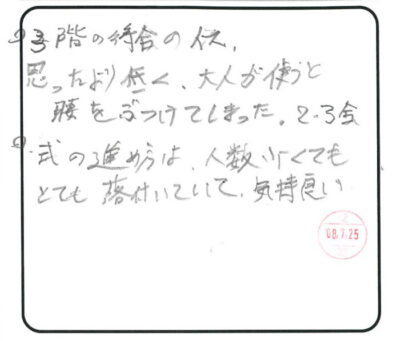 ・3階の待合のイス、
思ったより低く、大人が使うと
腰をぶつけてしまった。2.3回
・式の進め方は、人数少くても
とても落付いていて、気持良い
08.7.25